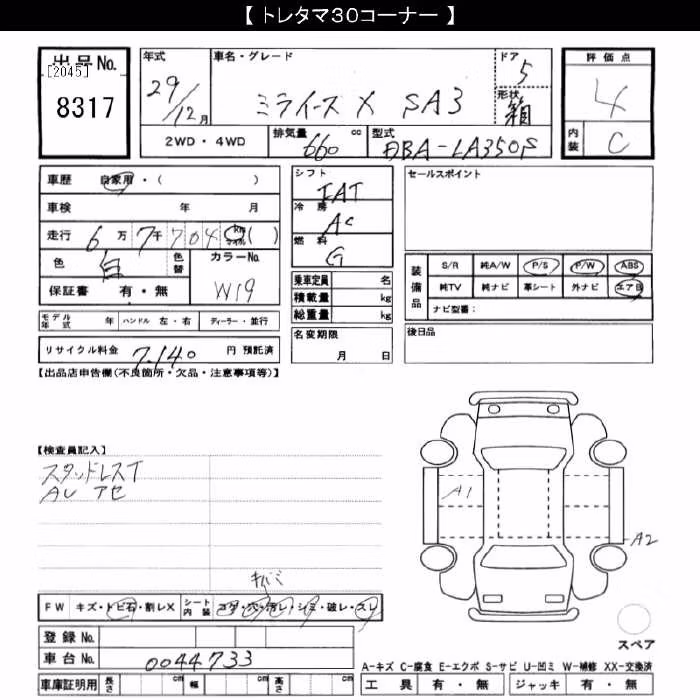 【 トレタマ30コーナー 】
出品No.
[2045]
8317
年式
29/12月
車名・グレード
ミライース X SA3
ドア
5
形状
箱
2WD・4WD
排気量
660 cc
型式
DBA-LA350S
評価点
4
内装
C
車歴 自家用・( )
車検 年 月
走行 6万7千704 km マイル ( )
色 白 色替
カラーNo.
W19
保証書 有・無
モデル年式 年 ハンドル 左・右 ディーラー・並行
リサイクル料金 7,140 円 預託済
シフト
IAT
冷房
AC
燃料
G
乗車定員 名
積載量 kg
総重量 kg
名変期限
月 日
セールスポイント
装備品
S/R 純A/W P/S P/W ABS
純TV 純ナビ 革シート 外ナビ エアB
ナビ型番：
後日品
【出品店申告欄(不良箇所・欠品・注意事項等)】
【検査員記入】
スタッドレスT
AU アセ
A1
A2
キバミ
FW キズ・トビ石・割レX シート内装 コゲ・穴・汚レ・シミ・破レ・スレ
登録 No.
車台 No. 0044733
車庫証明用 長さ cm 幅 cm 高さ cm
スペア
A-キズ C-腐食 E-エクボ S-サビ U-凹ミ W-補修 XX-交換済
工具 有・無 ジャッキ 有・無